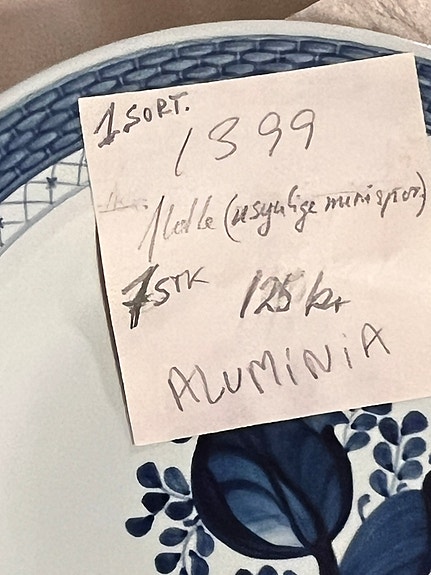 1 SORT.
1399
(usynlige minispor)
1 STK 125 kr
ALUMINIA